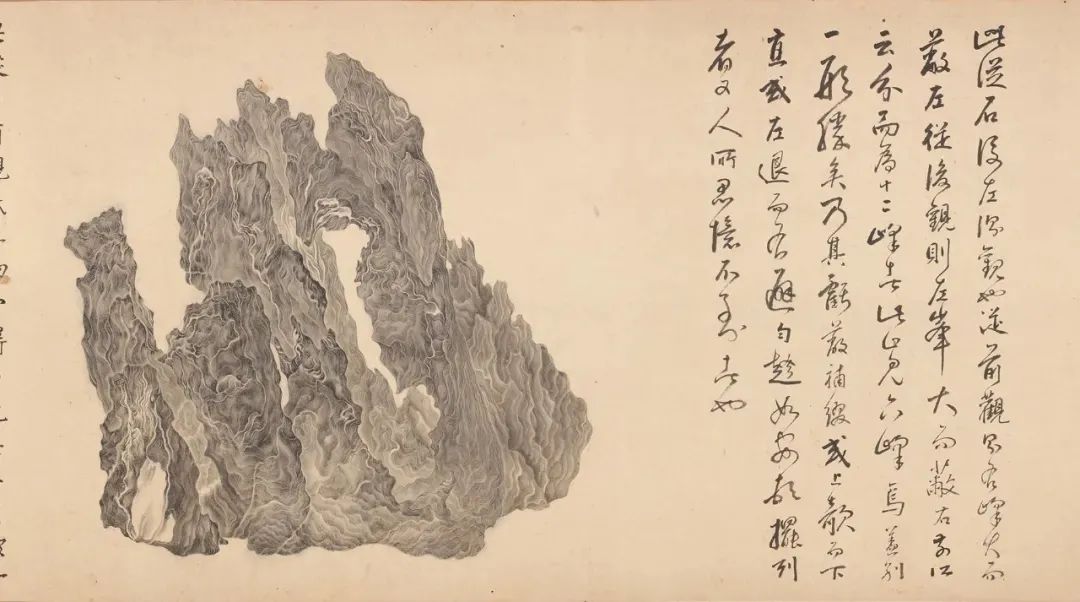 此從石後左側觀也從前觀則右峰大而
蔽左從後觀則左峯大而蔽右前
云分而為十二峰者此只見六峰焉蓋別
一形勝矣乃其虧蔽補綴或上欹而下
直或左退而右避勾趁如安頓擺列
者又人所思憶不到者也